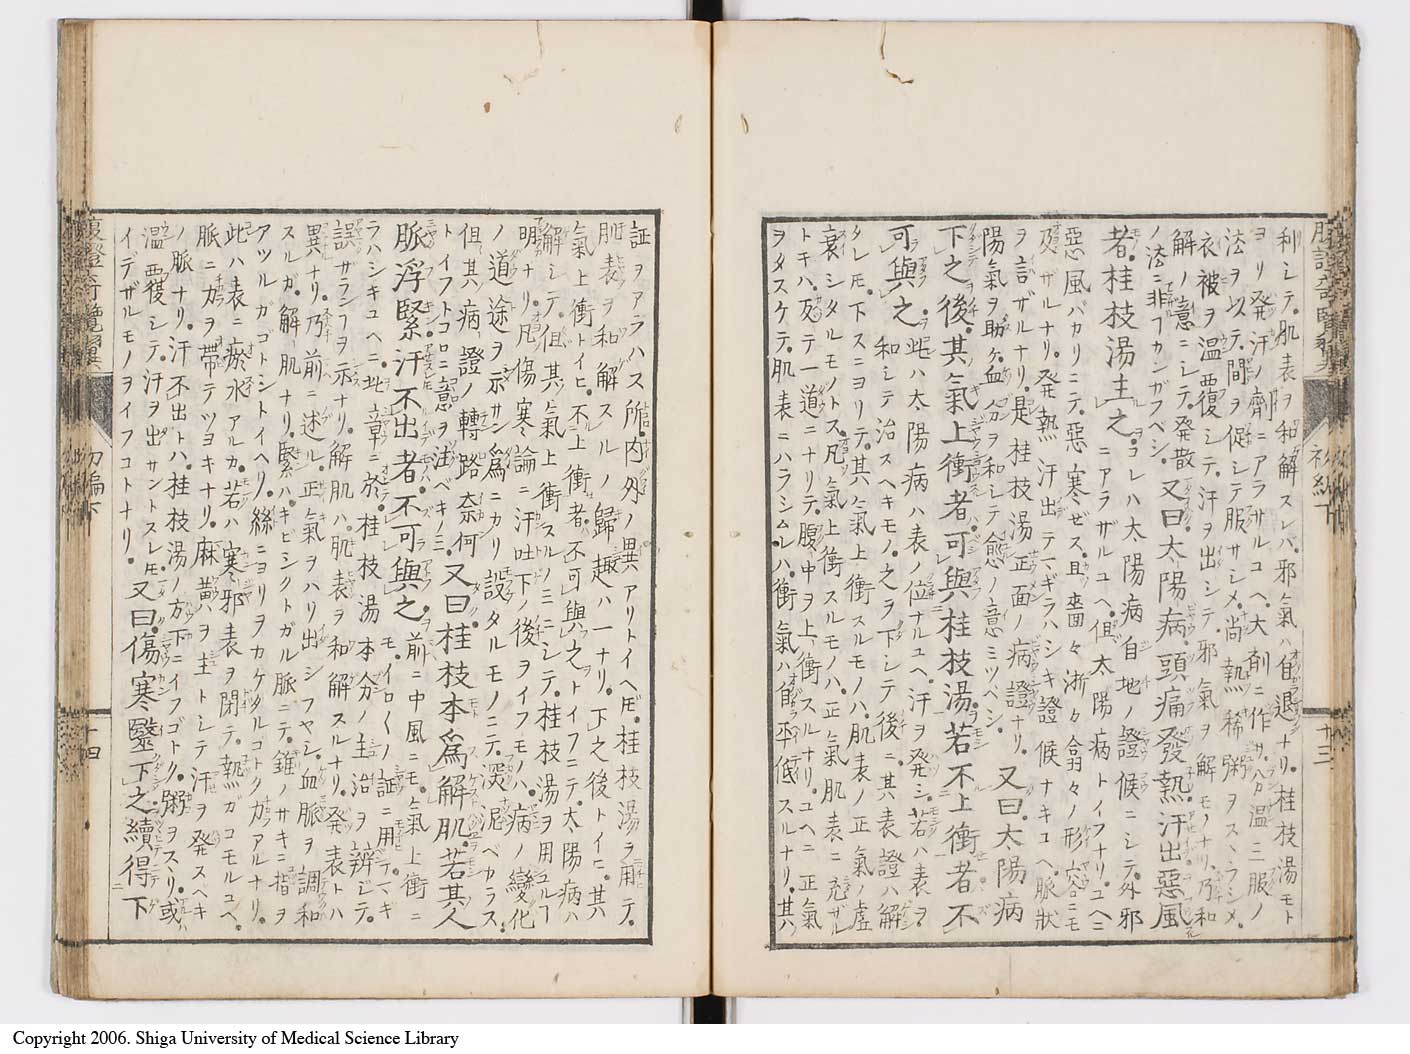 利シテ肌表ヲ和解スレバ邪氣ハ自退ナリ桂枝湯モト
ヨリ発汗ノ劑ニアラザルユヘ大剤ニ作サズ温ニ服ノ
法ヲ以テ間ヲ促シテ服サシメ尚熱稀粥ヲスヽラシメ
衣被ヲ温覆シテ汗ヲ出シテ邪氣ヲ解モノナリ乃和
解ノ意ニシテ発散 又曰太陽病頭痛發熱汗出惡風
ノ法ニ非フカンガフベシ
者桂枝湯主之 コレハ太陽病自地ノ證候ニシテ外邪
ニアラザルユヘ但太陽病トイフナリユヘニ
惡風バカリニテ惡寒ゼス且嗇々淅々翕々ノ形容ニモ
及ザルナリ発熱汗出テマギラハシキ證候ナキユヘ脈狀
ヲ言ザルナリ是桂枝湯正面ノ病證ナリ 又曰太陽病
陽氣ヲ助ケ血分ヲ和シテ愈ノ意ミツベシ
下之後其氣上衝者可與桂枝湯若不上衝者不
可與之 此ハ太陽病ハ表ノ位ナルユヘ汗ヲ発シ若ハ表ヲ
和シテ治スヘキモノ之ヲ下シテ後ニ其表證ハ解
タレ𪜈下スニヨリテ其氣上衝スルモノハ肌表ノ正氣ノ虚
衰シタルモノトス凡氣上衝スルモノハ正氣肌表ニ充ザル
トキハ反テ一道ニナリテ腹中ヲ上衝スルナリユヘニ正氣
ヲタスケテ肌表ニハラシムレハ衝氣ハ自平低スルナリ其ハ
十三
証ヲアラハス所内外ノ異ハアリトイヘ𪜈桂枝湯ヲ用テ
肌表ヲ和解スルノ歸趣ハ一ナリ下之後トイヒ其
氣上衝トイヒ不上衝者不可與之トイフニテ太陽病ハ
解シテ但其氣上衝スルノミニシテ桂枝湯ヲ用ユルヿ
明ナリ凡傷寒論ニ汗吐下ノ後ヲイフモノハ病ノ變化
ノ道途ヲ示サン爲ニカリ設タルモノニテ深泥ベカラス
但其病證ノ轉路奈何 又曰桂枝本爲解肌若其人
トイフトコロニ意ヲ注ベキノミ
脈浮緊汗不出者不可與之 前ニ中風ニモ氣上衝ニ
モイロ〱ノ証ニ用テマギ
ラハシキユヘニ此章ニ於桂枝湯本分ノ主治ヲ辨ジテ
誤サランヿヲ示ナリ解肌ハ肌表ヲ和解スルナリ発表トハ
異ナリ乃前ニ述ル正氣ヲハリ出シフヤシ血脈ヲ調和
スルガ解肌ナリ緊ハキビシクトガル脈ニテ錐ノサキニ指ヲ
アツルガゴトシトイヘリ絲ニヨリヲカケタルコトク力アルナリ
此ハ表ニ瘀水アルカ若ハ寒邪表ヲ閉テ熱ガコモルユヘ
脈ニ力ヲ帶テツヨキナリ麻黄ハヲ主トシテ汗ヲ発スベキ
ノ脈ナリ汗不出トハ桂枝湯ノ方下ニイフゴトク粥ヲスヽリ或ハ
温覆シテ汗ヲ出サントスレ𪜈 又曰傷寒醫下之續得下
イデザルモノヲイフコトナリ
初編下
十四
Copyright 2006. Shiga University of Medical Science Library